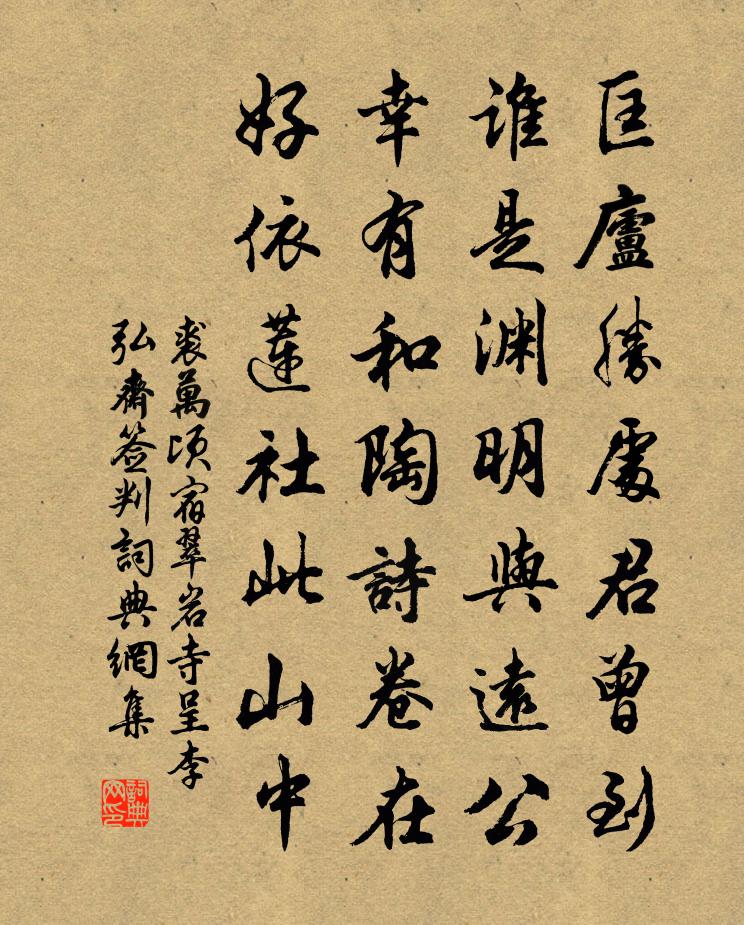 匡廬勝處君曾到
誰是淵明與遠公
幸有和陶詩卷在
好依蓮社此山中
裘萬頃宿翠岩寺呈李
弘齋簽判詞典網集
詞典
网印